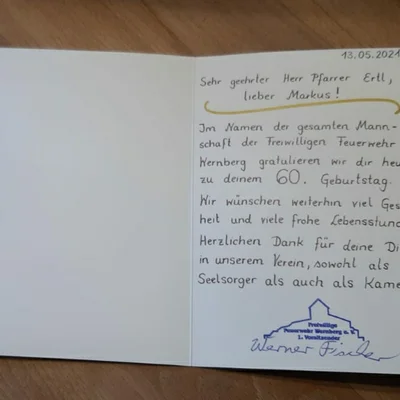 13.05.2021
Sehr geehrter Herr Pfarrer Ertl,
lieber Markus!
Im Namen der gesamten Mann-
schaft der Freiwilligen Feuerwehr
Wernberg gratulieren wir dir heu
zu deinem 60. Geburtstag.
Wir wünschen weiterhin viel Ges
heit und viele frohe Lebensstund
Herzlichen Dank für deine Di
in unserem Verein, sowohl als
Seelsorger als auch als Kame
Freiwillige
Feuerwehr Wernberg e. V.
1. Vorsitzender
Werner Fischer